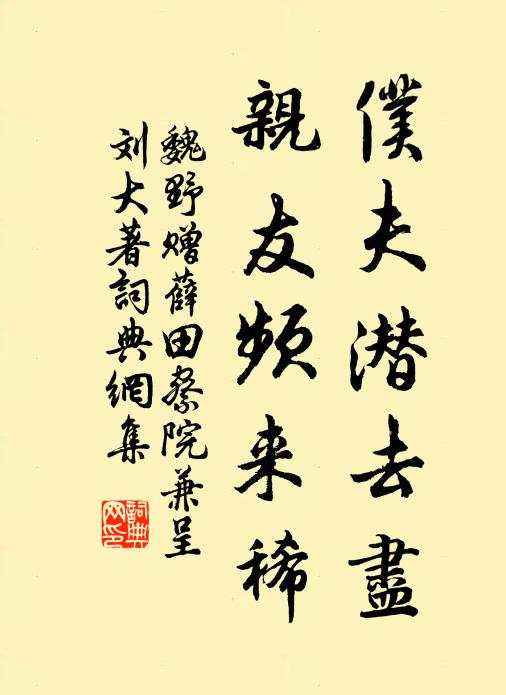 僕夫潜去盡
親友頻来稀
魏野贈薛田察院兼呈
刘大著詞典網集
詞典
网印